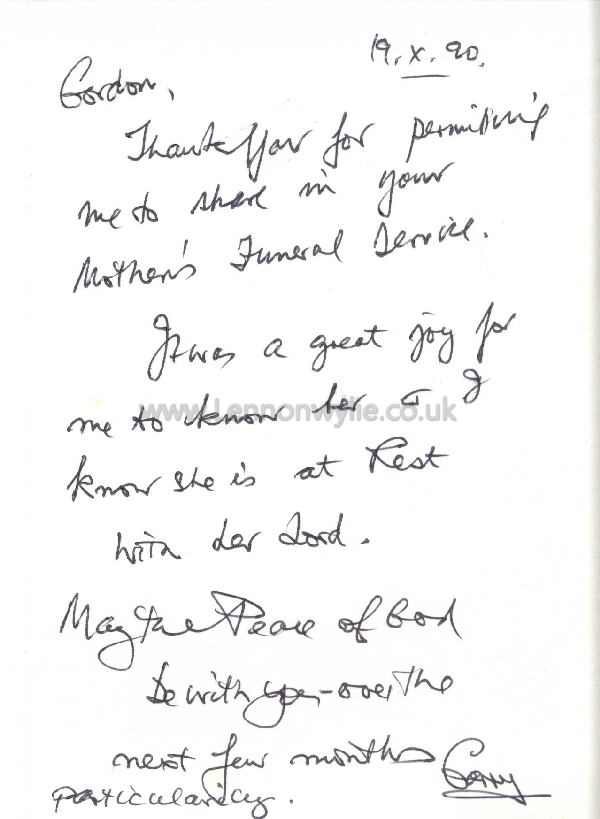 19.X.90.
Gordon,
Thank you for permitting
me to share in your
Mother's Funeral Service.
It was a great joy for
me to know her & I
www.Lennonwylie.co.uk
know she is at Rest
with her Lord.
May the Peace of God
be with you - over the
next few months
particularly.
Gerry